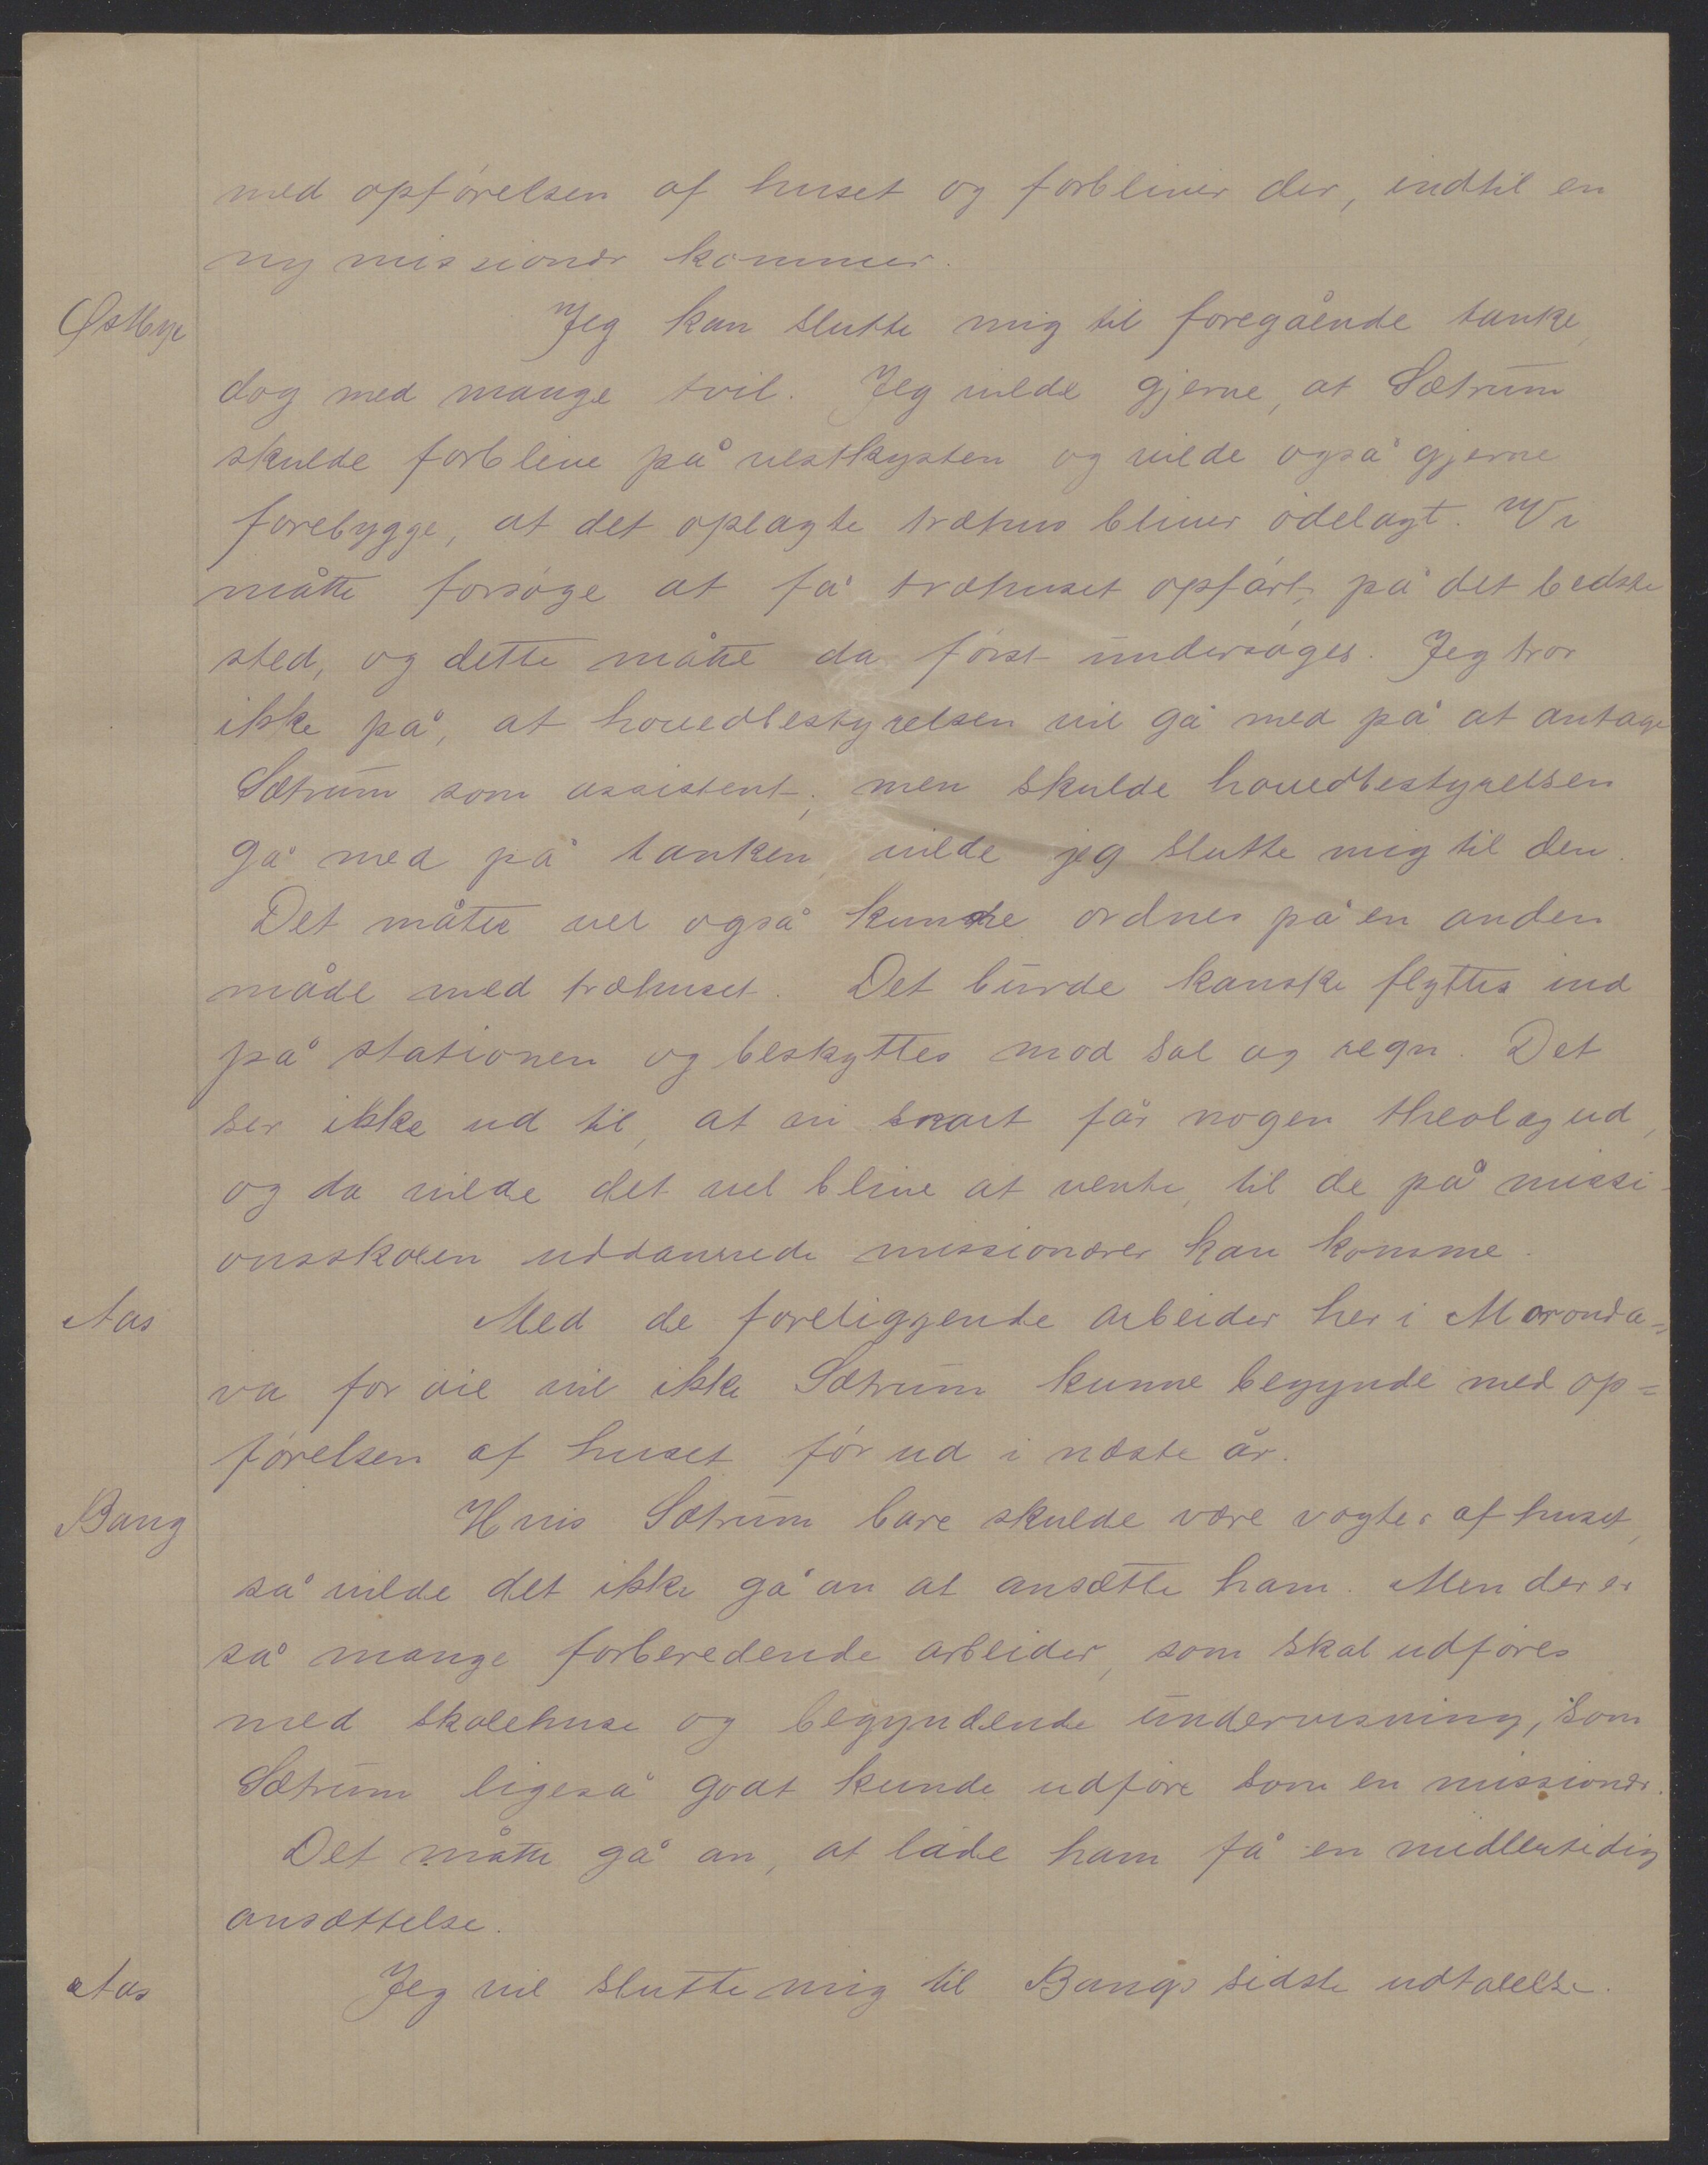 med opførelsen af huset og forbliver der, indtil en
ny missionær kommer.
Østbye Jeg kan slutte mig til foregående tanke,
dog med mange tvil. Jeg vilde gjerne, at Sætrum
skulde forblive på vestkysten og vilde også gjerne
forebygge, at det oplagte træhus bliver ødelagt. Vi
måtte forsøge at få træhuset opført, på det bedste
sted, og dette måtte da først undersøges. Jeg tror
ikke på, at hovedbestyrelsen vil gå med på at antage
Sætrum som assistent; men skulde hovedbestyrelsen
gå med på tanken vilde jeg slutte mig til den.
Det måtte vel også kunne ordnes på en anden
måde med træhuset. Det burde kanske flyttes ind
på stationen og beskyttes mod sol og regn. Det
ser ikke ud til, at vi snart får nogen theolog ud,
og da vilde det vel blive at vente, til de på missi-
onsskolen uddannede missionærer kan komme.
Aas Med de foreliggende arbeider her i Moronda=
va for øie vil ikke Sætrum kunne begynde med op=
førelsen af huset før ud i næste år.
Bang Hvis Sætrum bare skulde være vogter af huset,
så vilde det ikke gå an at ansætte ham. Men der er
så mange forberedende arbeider, som skal udføres
med skolehuse og begyndende undervisning, som
Sætrum ligeså godt kunde udføre som en missionær.
Det måtte gå an, at lade ham få en midlertidig
ansættelse.
Aas Jeg vil slutte mig til Bangs sidste udtalelse.